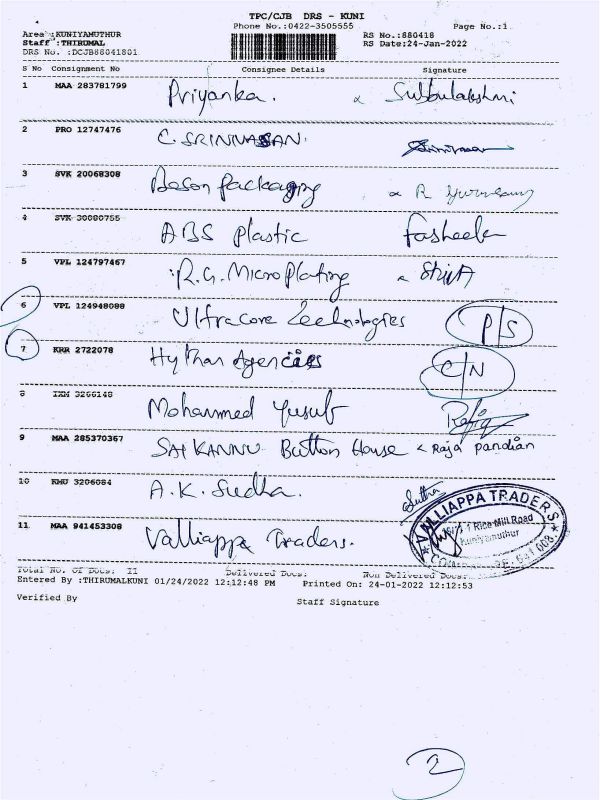 TPC/CJB DRS - KUNI
Phone No.:0422-3505555 Page No.:1
Area :KUNIYAMUTHUR RS No.:880418
Staff :THIRUMAL RS Date:24-Jan-2022
DRS No. :DCJB88041801
S No Consignment No Consignee Details Signature
1 MAA 283781799 Priyanka. Subbulakshmi
2 PRO 12747476 C. SRINIVASAN.
3 SVK 20068308 Beson Packaging R
4 SVK 30080755 ABS Plastic Fasheela
5 VPL 124797467 R.G. Micro Plating
6 VPL 124948088 Ultracore Technologies P/S
7 KRR 2722078 Hythar Agencies C/N
8 IXM 3266148 Mohammed Yusub Rafiq
9 MAA 285370367 SAI KANNU Button House Raja pandian
10 KMU 3206084 A.K. Sudha. Sudha
11 MAA 941453308 Valliappa Traders.
VALLIAPPA TRADERS
1 Rice Mill Road
Kuniyamuthur
COIMBATORE-641 008.
Total No. of Docs: 11 Delivered Docs: Non Delivered Docs:
Entered By :THIRUMALKUNI 01/24/2022 12:12:48 PM Printed On: 24-01-2022 12:12:53
Verified By Staff Signature
2